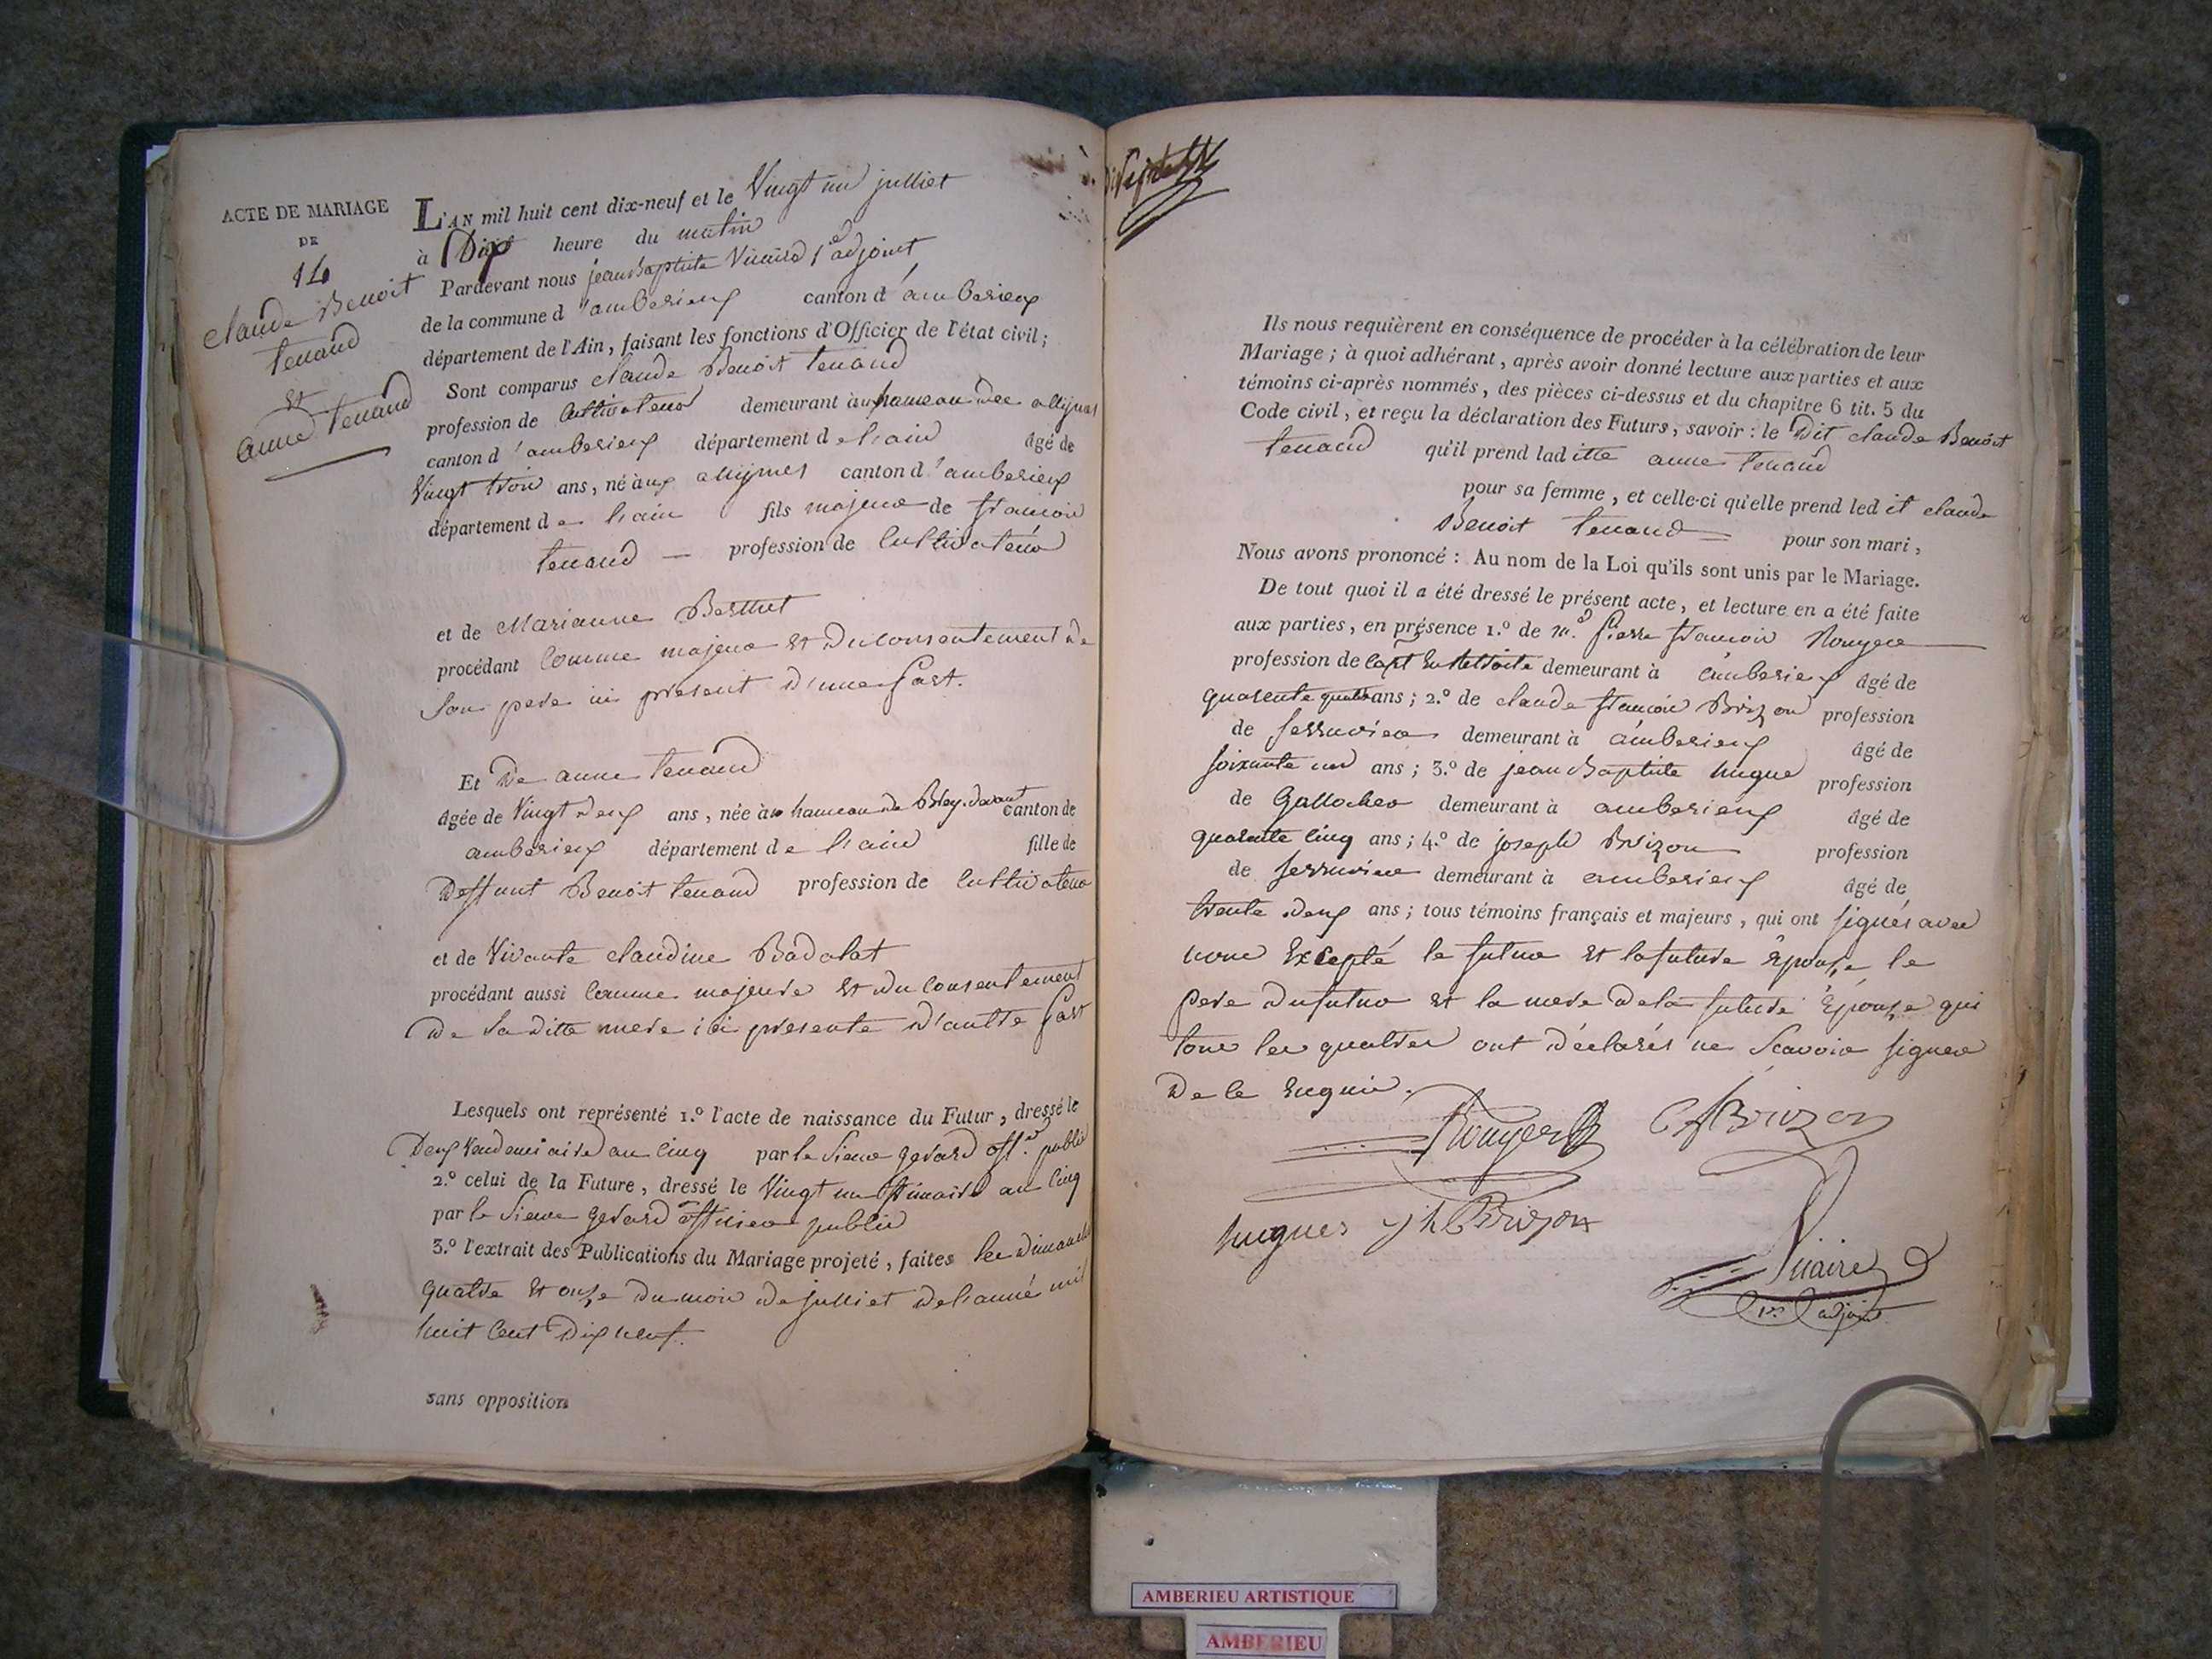 ACTE DE MARIAGE
DE
14
Claude Benoit
tenand
et
anne tenand
L'AN mil huit cent dix-neuf et le Vingt un julliet
à Dix heure du matin
Pardevant nous jean Baptiste 1er adjoint
de la commune d'amberieux canton d'amberieux
département de l'Ain, faisant les fonctions d'Officier de l'état civil;
Sont comparus Claude Benoit tenand
profession de Cultivateur demeurant au hameau des allymes
canton d'amberieux département de l'ain âgé de
Vingt trois ans, né aux allymes canton d'amberieux
département de l'ain fils majeur de francois
tenand — profession de Cultivateur
et de Marianne Berthet
procédant Comme majeur et du consentement de
Son pere ici present d'une part.
Et De anne tenand
âgée de Vingt deux ans, née au hameau de Brey. devant canton de
amberieux département de l'ain fille de
deffunt Benoit tenand profession de Cultivateur
et de Vivante Claudine Badolat
procédant aussi Comme majeure et du consentement
de Sa ditte mere ici presente d'autre part
Lesquels ont représenté 1.º l'acte de naissance du Futur, dressé le
Deux Vendemiaire an cinq par le Sieur gerard off.er public
2.º celui de la Future, dressé le Vingt un frimaire an Cinq
par le Sieur gerard officier public
3.º l'extrait des Publications du Mariage projeté, faites les dimanche
quatre et onze du mois de julliet de l'anné mil
huit Cent Dix neuf.
sans opposition
Ils nous requièrent en conséquence de procéder à la célébration de leur
Mariage; à quoi adhérant, après avoir donné lecture aux parties et aux
témoins ci-après nommés, des pièces ci-dessus et du chapitre 6 tit. 5 du
Code civil, et reçu la déclaration des Futurs, savoir: le Dit Claude Benoit
tenand qu'il prend laditte anne tenand
pour sa femme, et celle-ci qu'elle prend ledit Claude
Benoit tenand pour son mari,
Nous avons prononcé: Au nom de la Loi qu'ils sont unis par le Mariage.
De tout quoi il a été dressé le présent acte, et lecture en a été faite
aux parties, en présence 1.º de m.r pierre francois Rouyer
profession de Capt En Retraite demeurant à amberieux âgé de
quarente quatre ans; 2.º de Claude francois Brizon profession
de Serrurier demeurant à amberieux âgé de
soixante un ans; 3.º de jean Baptiste hugue profession
de Gallocher demeurant à amberieux âgé de
quarente cinq ans; 4.º de joseph Brizon profession
de Serrurier demeurant à amberieux âgé de
trente deux ans; tous témoins français et majeurs, qui ont signés avec
nous Excepté le futur et la future Epouze le
pere du futur et la mere de la future Epouze qui
tous les quatres ont déclarés ne Scavoir signer
de le Enquis.
Rouyer CfBrizon
hugues jh Brizon
1er adjoint
AMBERIEU ARTISTIQUE
AMBERIEU